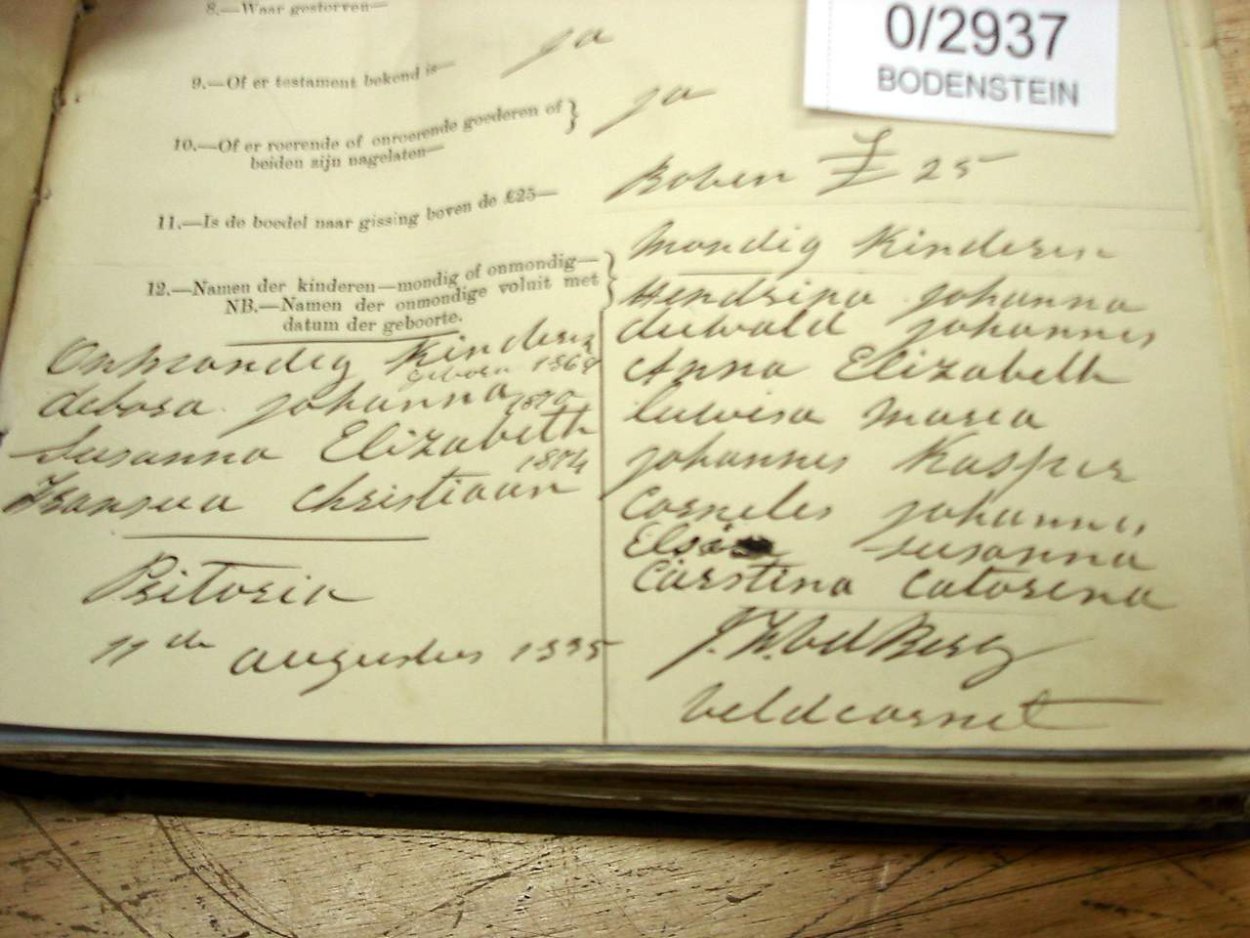 0/2937
BODENSTEIN
8.—Waar gestorven—
9.—Of er testament bekend is—
ja
10.—Of er roerende of onroerende goederen of
beiden zijn nagelaten—
ja
11.—Is de boedel naar gissing boven de £25—
Boven £ 25
12.—Namen der kinderen—mondig of onmondig—
NB.—Namen der onmondige voluit met
datum der geboorte.
Onmondig Kinderen
geboren 1868
debora johanna
Susanna Elizabeth
1874
Christiaan
Pritoria
11de augustus
mondig Kinderen
Hendrina johanna
diewald johannes
Anna Elizabeth
luwisa maria
johannes Kasper
Corneles johannes
susanna
Carstina Catorena
vd Berg
veldcornet